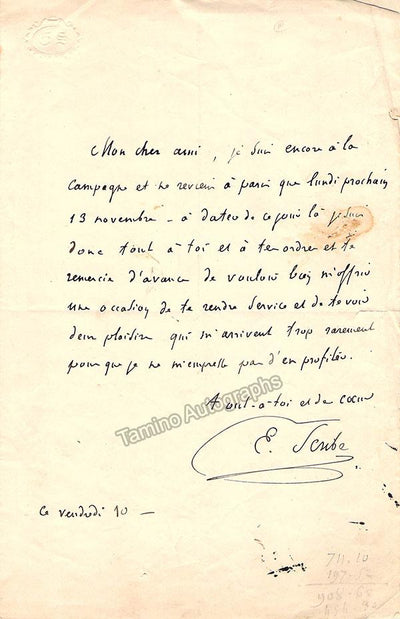 ES
Mon cher ami, je suis encore à la
campagne et ne reviens à paris que lundi prochain
13 novembre - à dater de ce jour là je suis
donc tout à toi et à tes ordres et te
remercie d'avance de vouloir bien m'offrir
une occasion de te rendre service et de te voir
deux plaisirs qui m'arrivent trop rarement
pour que je ne m'empresse pas d'en profiter.
tout-à-toi et de coeur
Tamino Autographs
E. Scribe
Ce vendredi 10 -
711.10